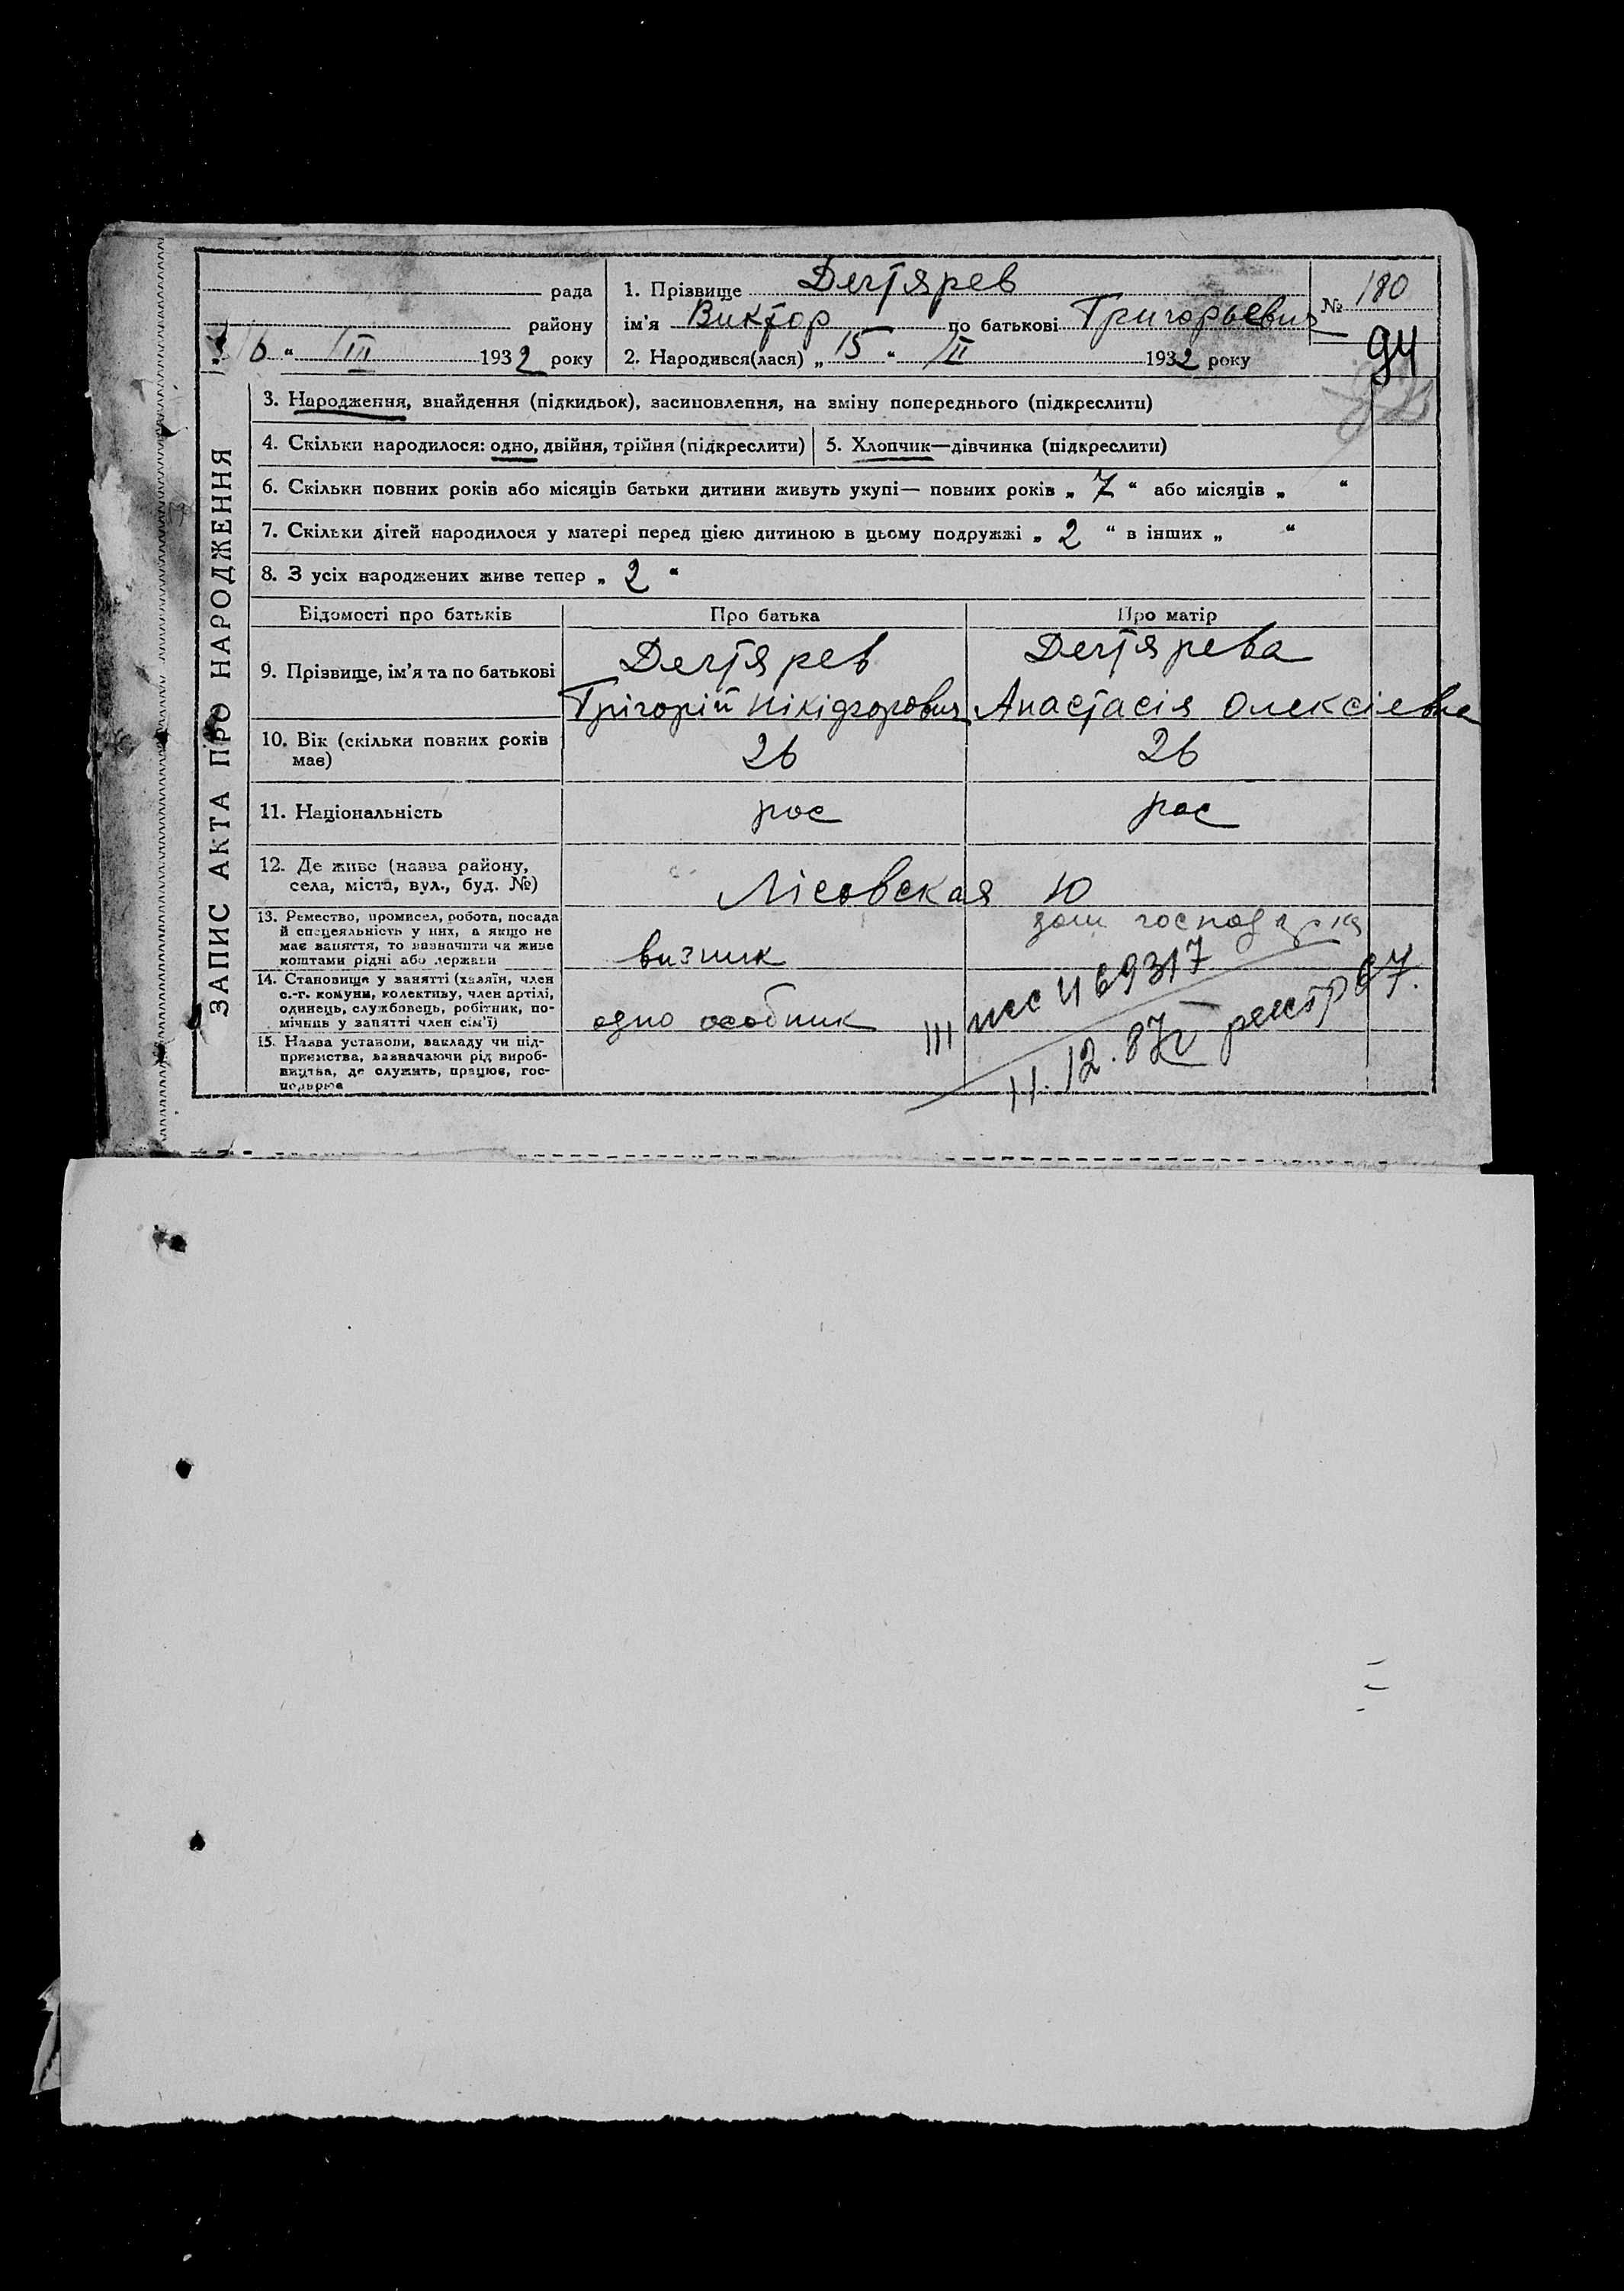 ЗАПИС АКТА ПРО НАРОДЖЕННЯ
рада
району
„ 6 “ III 1932 року
1. Прізвище Дегтярев
ім'я Виктор по батькові Григорьевич
2. Народився(лася) „ 15 “ II 1932 року
№ 180
94
3. Народження, знайдення (підкидьок), засиновлення, на зміну попереднього (підкреслити)
4. Скільки народилося: одно, двійня, трійня (підкреслити)
5. Хлопчик—дівчинка (підкреслити)
6. Скільки повних років або місяців батьки дитини живуть укупі— повних років „ 7 “ або місяців „ “
7. Скільки дітей народилося у матері перед цією дитиною в цьому подружжі „ 2 “ в інших „ “
8. З усіх народжених живе тепер „ 2 “
Відомості про батьків Про батька Про матір
9. Прізвище, ім'я та по батькові
Дегтярев
Григорій Нікіфорович
Дегтярева
Анастасія Олексіевна
10. Вік (скільки повних років
має)
26 26
11. Національність рос рос
12. Де живе (назва району,
села, міста, вул., буд. №)
Лісовская 10
13. Ремество, промисел, робота, посада
й спецеяльність у них, а якщо не
має заняття, то зазначити чи живе
коштами рідні або держави
визник
дом господарка
14. Становище у занятті (хазяїн, член
с.-г. комуни, колективу, член артілі,
одинець, службовець, робітник, по-
мічник у занятті член сім'ї)
одно особник
15. Назва установи, закладу чи під-
приємства, зазначаючи рід вироб-
ництва, де служить, працює, гос-
подарює
469317
11.12.87г